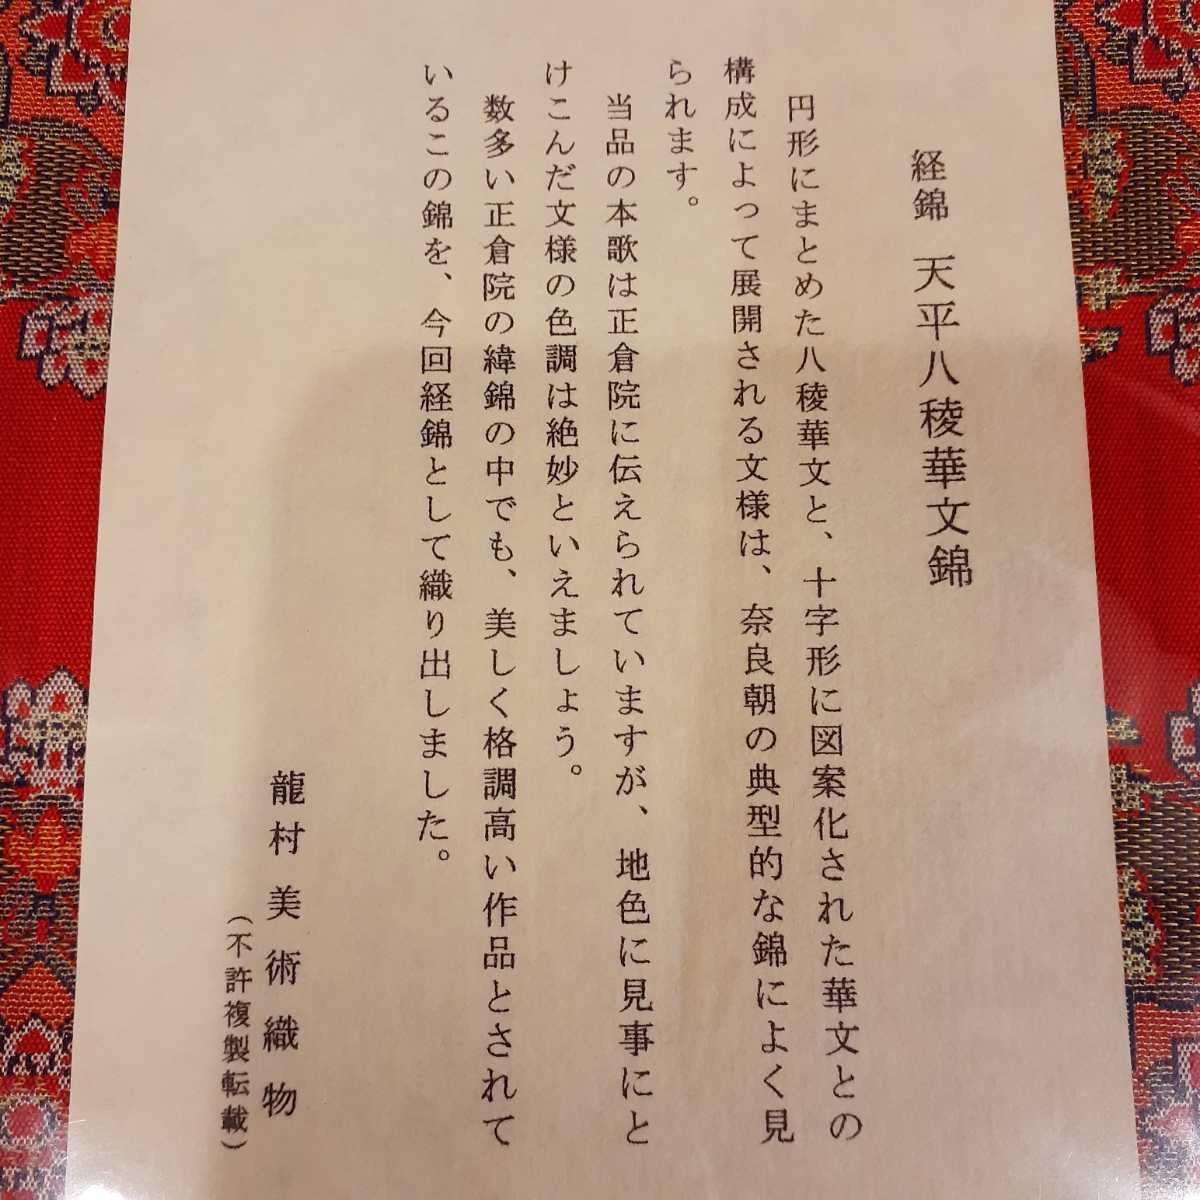 経錦 天平八稜華文錦
円形にまとめた八稜華文と、十字形に図案化された華文との
構成によって展開される文様は、奈良朝の典型的な錦によく見
られます。
当品の本歌は正倉院に伝えられていますが、地色に見事にと
けこんだ文様の色調は絶妙といえましょう。
数多い正倉院の緯錦の中でも、美しく格調高い作品とされて
いるこの錦を、今回経錦として織り出しました。
龍村美術織物
（不許複製転載）